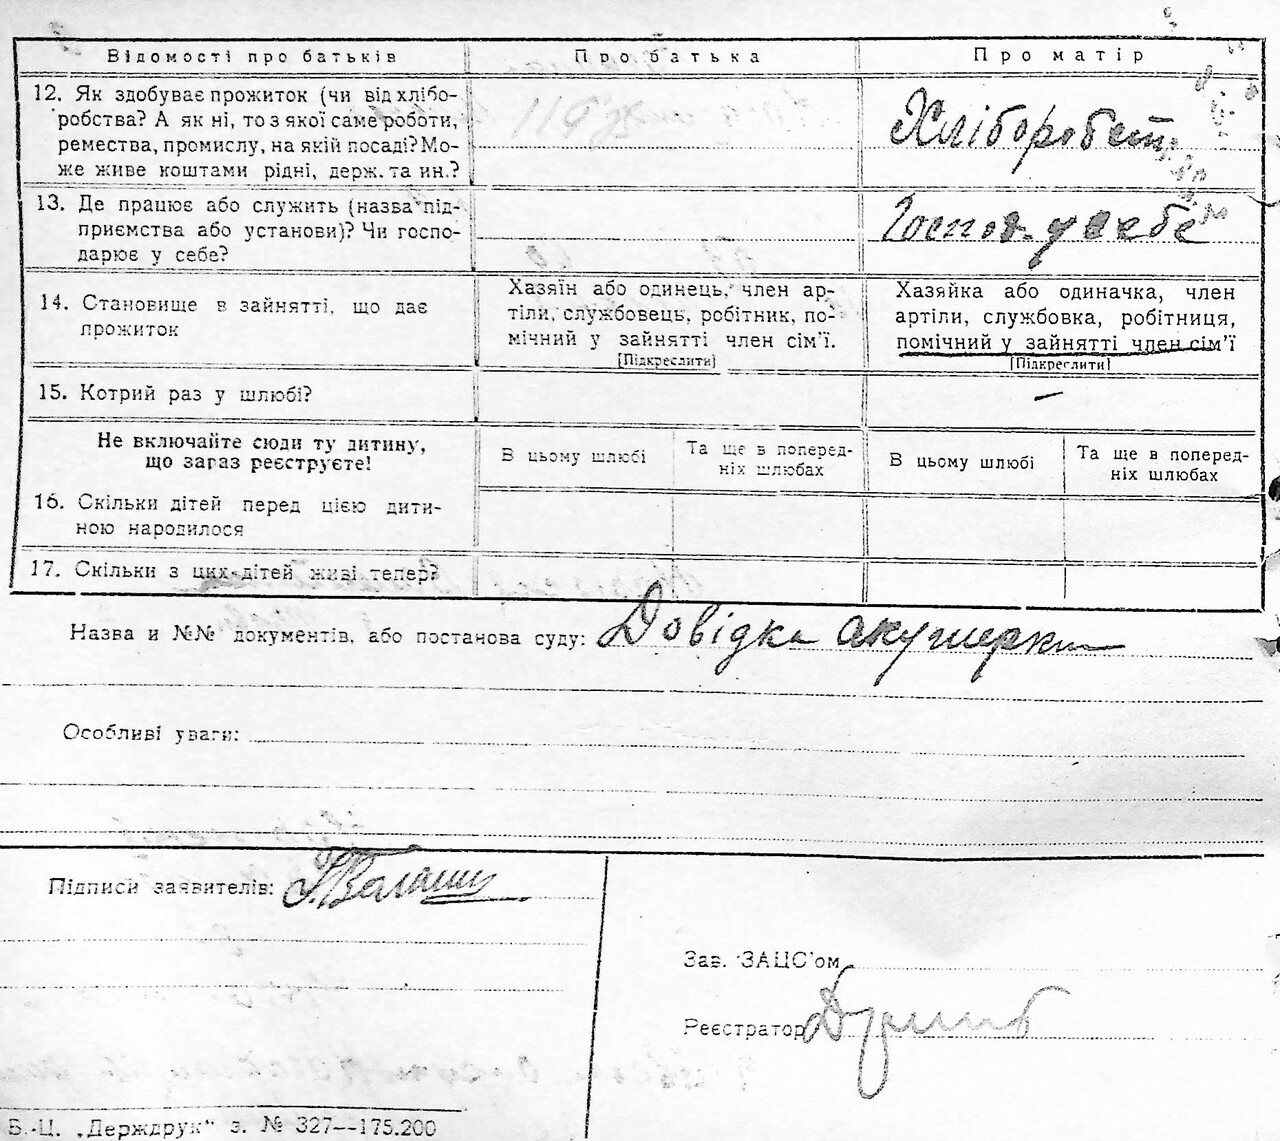 Відомості про батьків Про батька Про матір
12. Як здобуває прожиток (чи від хлібо-
робства? А як ні, то з якої саме роботи,
ремества, промислу, на якій посаді? Мо-
же живе коштами рідні, держ. та ин.?
Хліборобст
13. Де працює або служить (назва під-
приємства або установи)? Чи госпо-
дарює у себе?
Господ. у себе
14. Становище в зайнятті, що дає
прожиток
Хазяїн або одинець, член ар-
тіли, службовець, робітник, по-
мічний у зайнятті член сім'ї.
[Підкреслити]
Хазяйка або одиначка, член
артіли, службовка, робітниця,
помічний у зайнятті член сім'ї
[Підкреслити]
15. Котрий раз у шлюбі? —
Не включайте сюди ту дитину,
що зараз реєструєте!
В цьому шлюбі
Та ще в поперед-
ніх шлюбах
В цьому шлюбі
Та ще в поперед-
ніх шлюбах
16. Скільки дітей перед цією дити-
ною народилося
17. Скільки з цих дітей живі тепер?
Назва и №№ документів, або постанова суду: Довідка акушерки
Особливі уваги:
Підписи заявителів:
Зав. ЗАЦС'ом
Реєстратор
Б.-Ц. „Держдрук" з. № 327—175.200